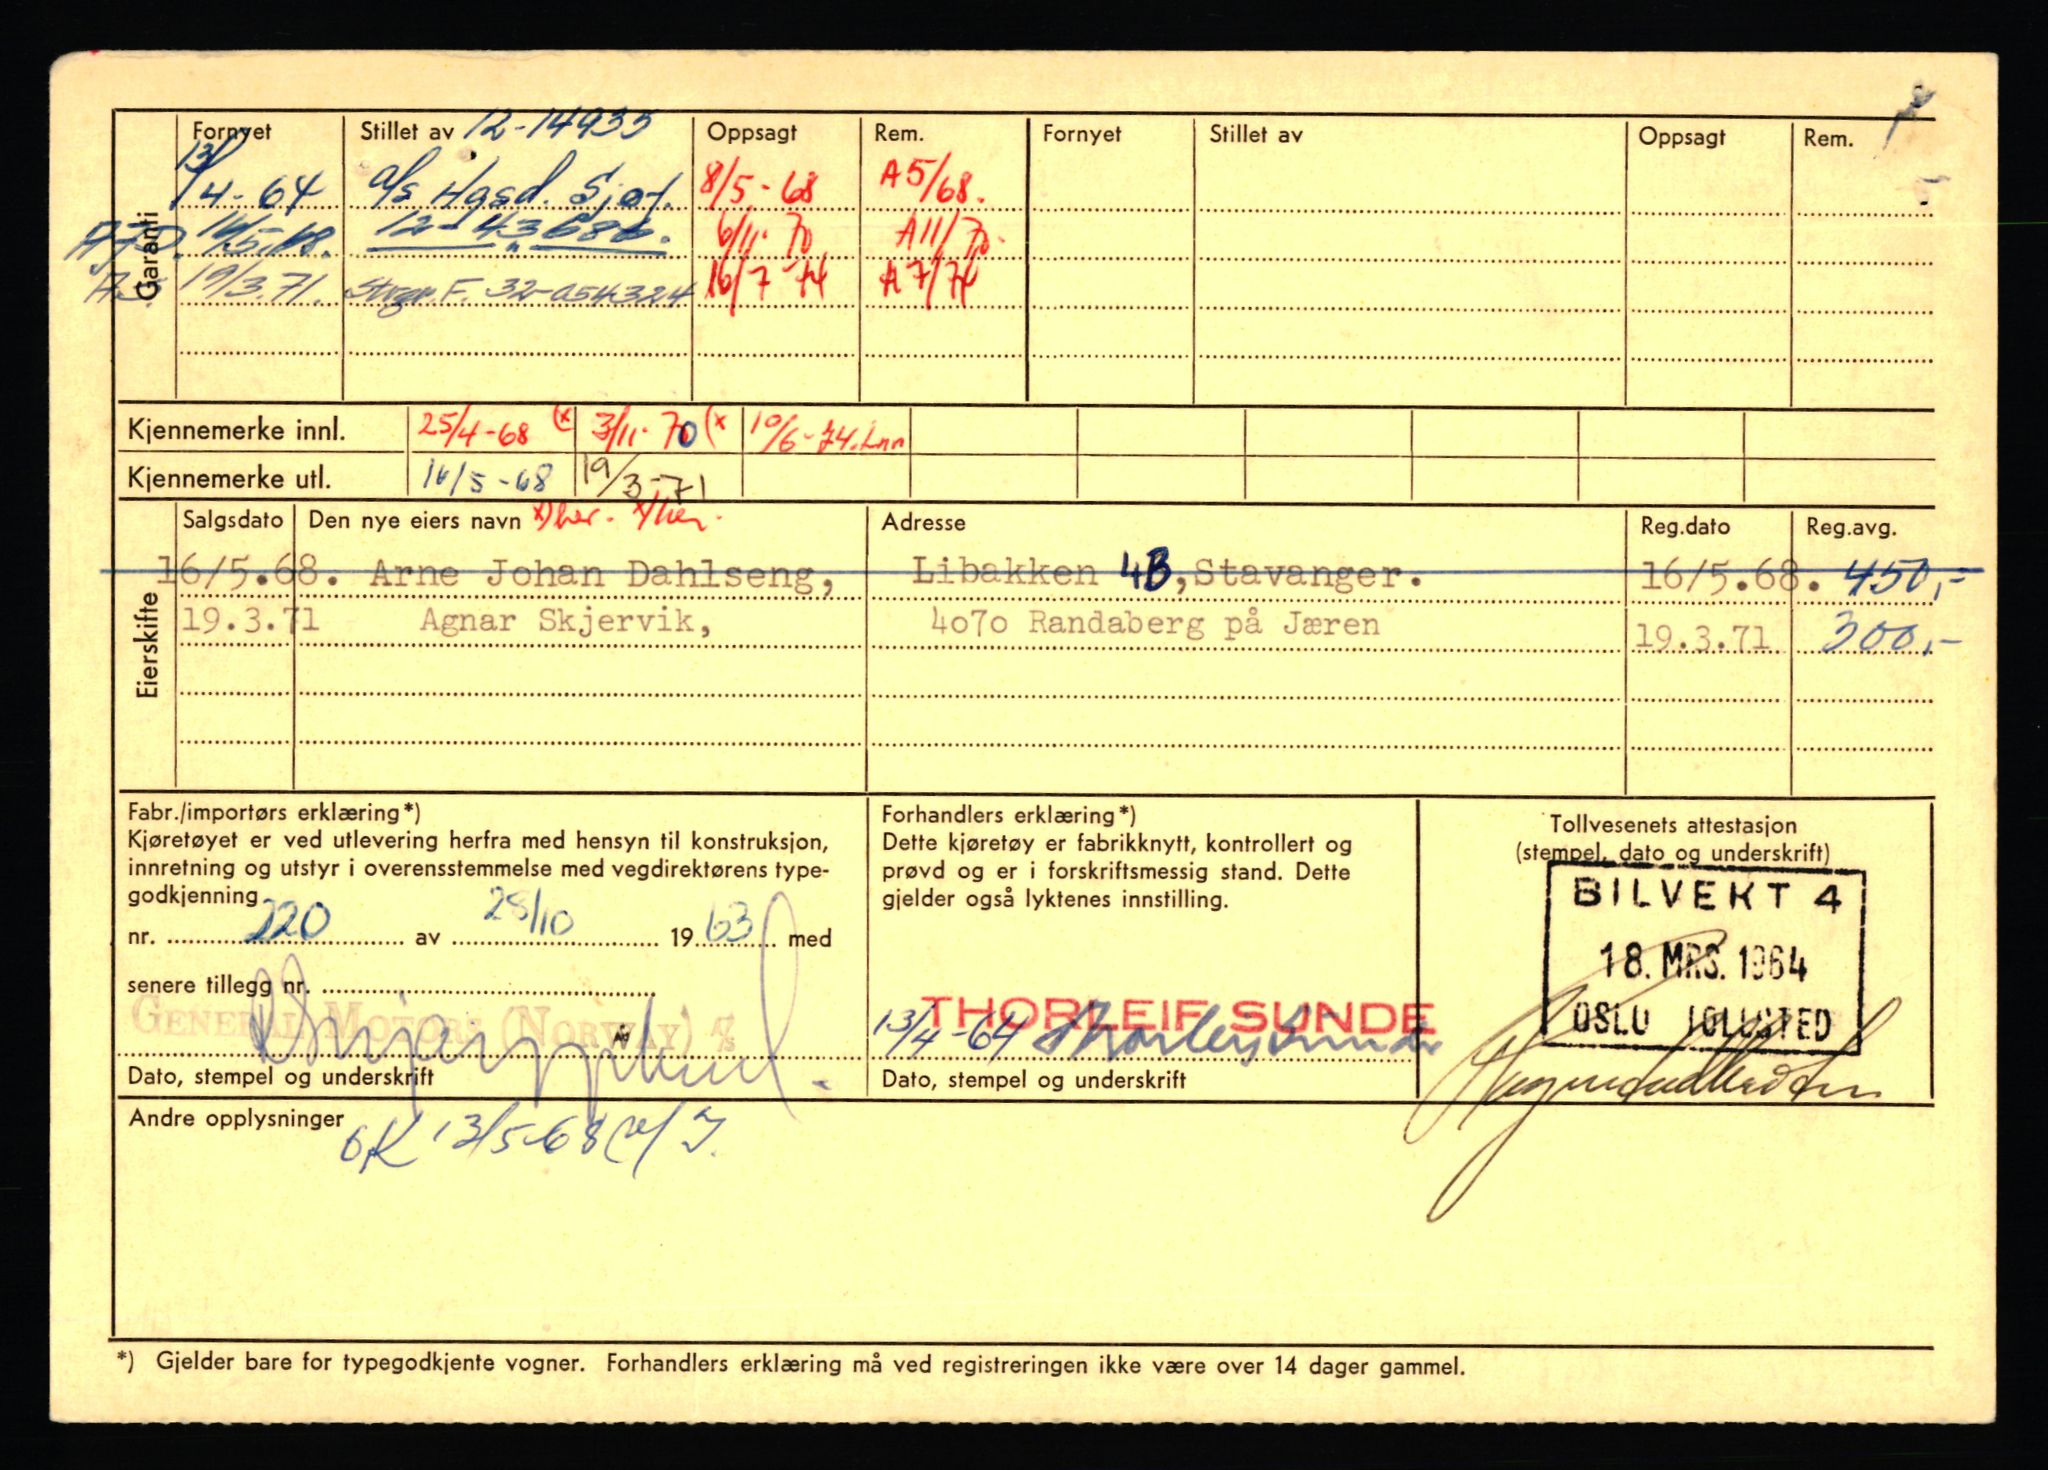 Garanti
Fornyet Stillet av 12-14935 Oppsagt Rem. Fornyet Stillet av Oppsagt Rem.
13/4-64 a/s Hgsd. Sjøf. 8/5-68 A5/68.
16/5-68. 12-43686. 6/11-70 A11/70.
19/3.71. F. 32-054324 16/7-74 A7/74
Kjennemerke innl. 25/4-68 (x 3/11-70 (x 10/6-74.
Kjennemerke utl. 16/5-68 19/3-71
Eierskifte
Salgsdato Den nye eiers navn x) her. x) her. Adresse Reg.dato Reg.avg.
16/5.68. Arne Johan Dahlseng, Libakken 4B, Stavanger. 16/5.68. 450,-
19.3.71 Agnar Skjervik, 4070 Randaberg på Jæren 19.3.71 300,-
Fabr./importørs erklæring*)
Kjøretøyet er ved utlevering herfra med hensyn til konstruksjon,
innretning og utstyr i overensstemmelse med vegdirektørens type-
godkjenning
nr. 220 av 28/10 1963 med
senere tillegg nr.
General Motors (Norway) A/S
Dato, stempel og underskrift
Forhandlers erklæring*)
Dette kjøretøy er fabrikknytt, kontrollert og
prøvd og er i forskriftsmessig stand. Dette
gjelder også lyktenes innstilling.
THORLEIF SUNDE
13/4-64 Thorleif Sunde
Dato, stempel og underskrift
Tollvesenets attestasjon
(stempel, dato og underskrift)
BILVEKT 4
18. MRS. 1964
OSLO TOLLSTED
Andre opplysninger
OK 13/5-68
*) Gjelder bare for typegodkjente vogner. Forhandlers erklæring må ved registreringen ikke være over 14 dager gammel.